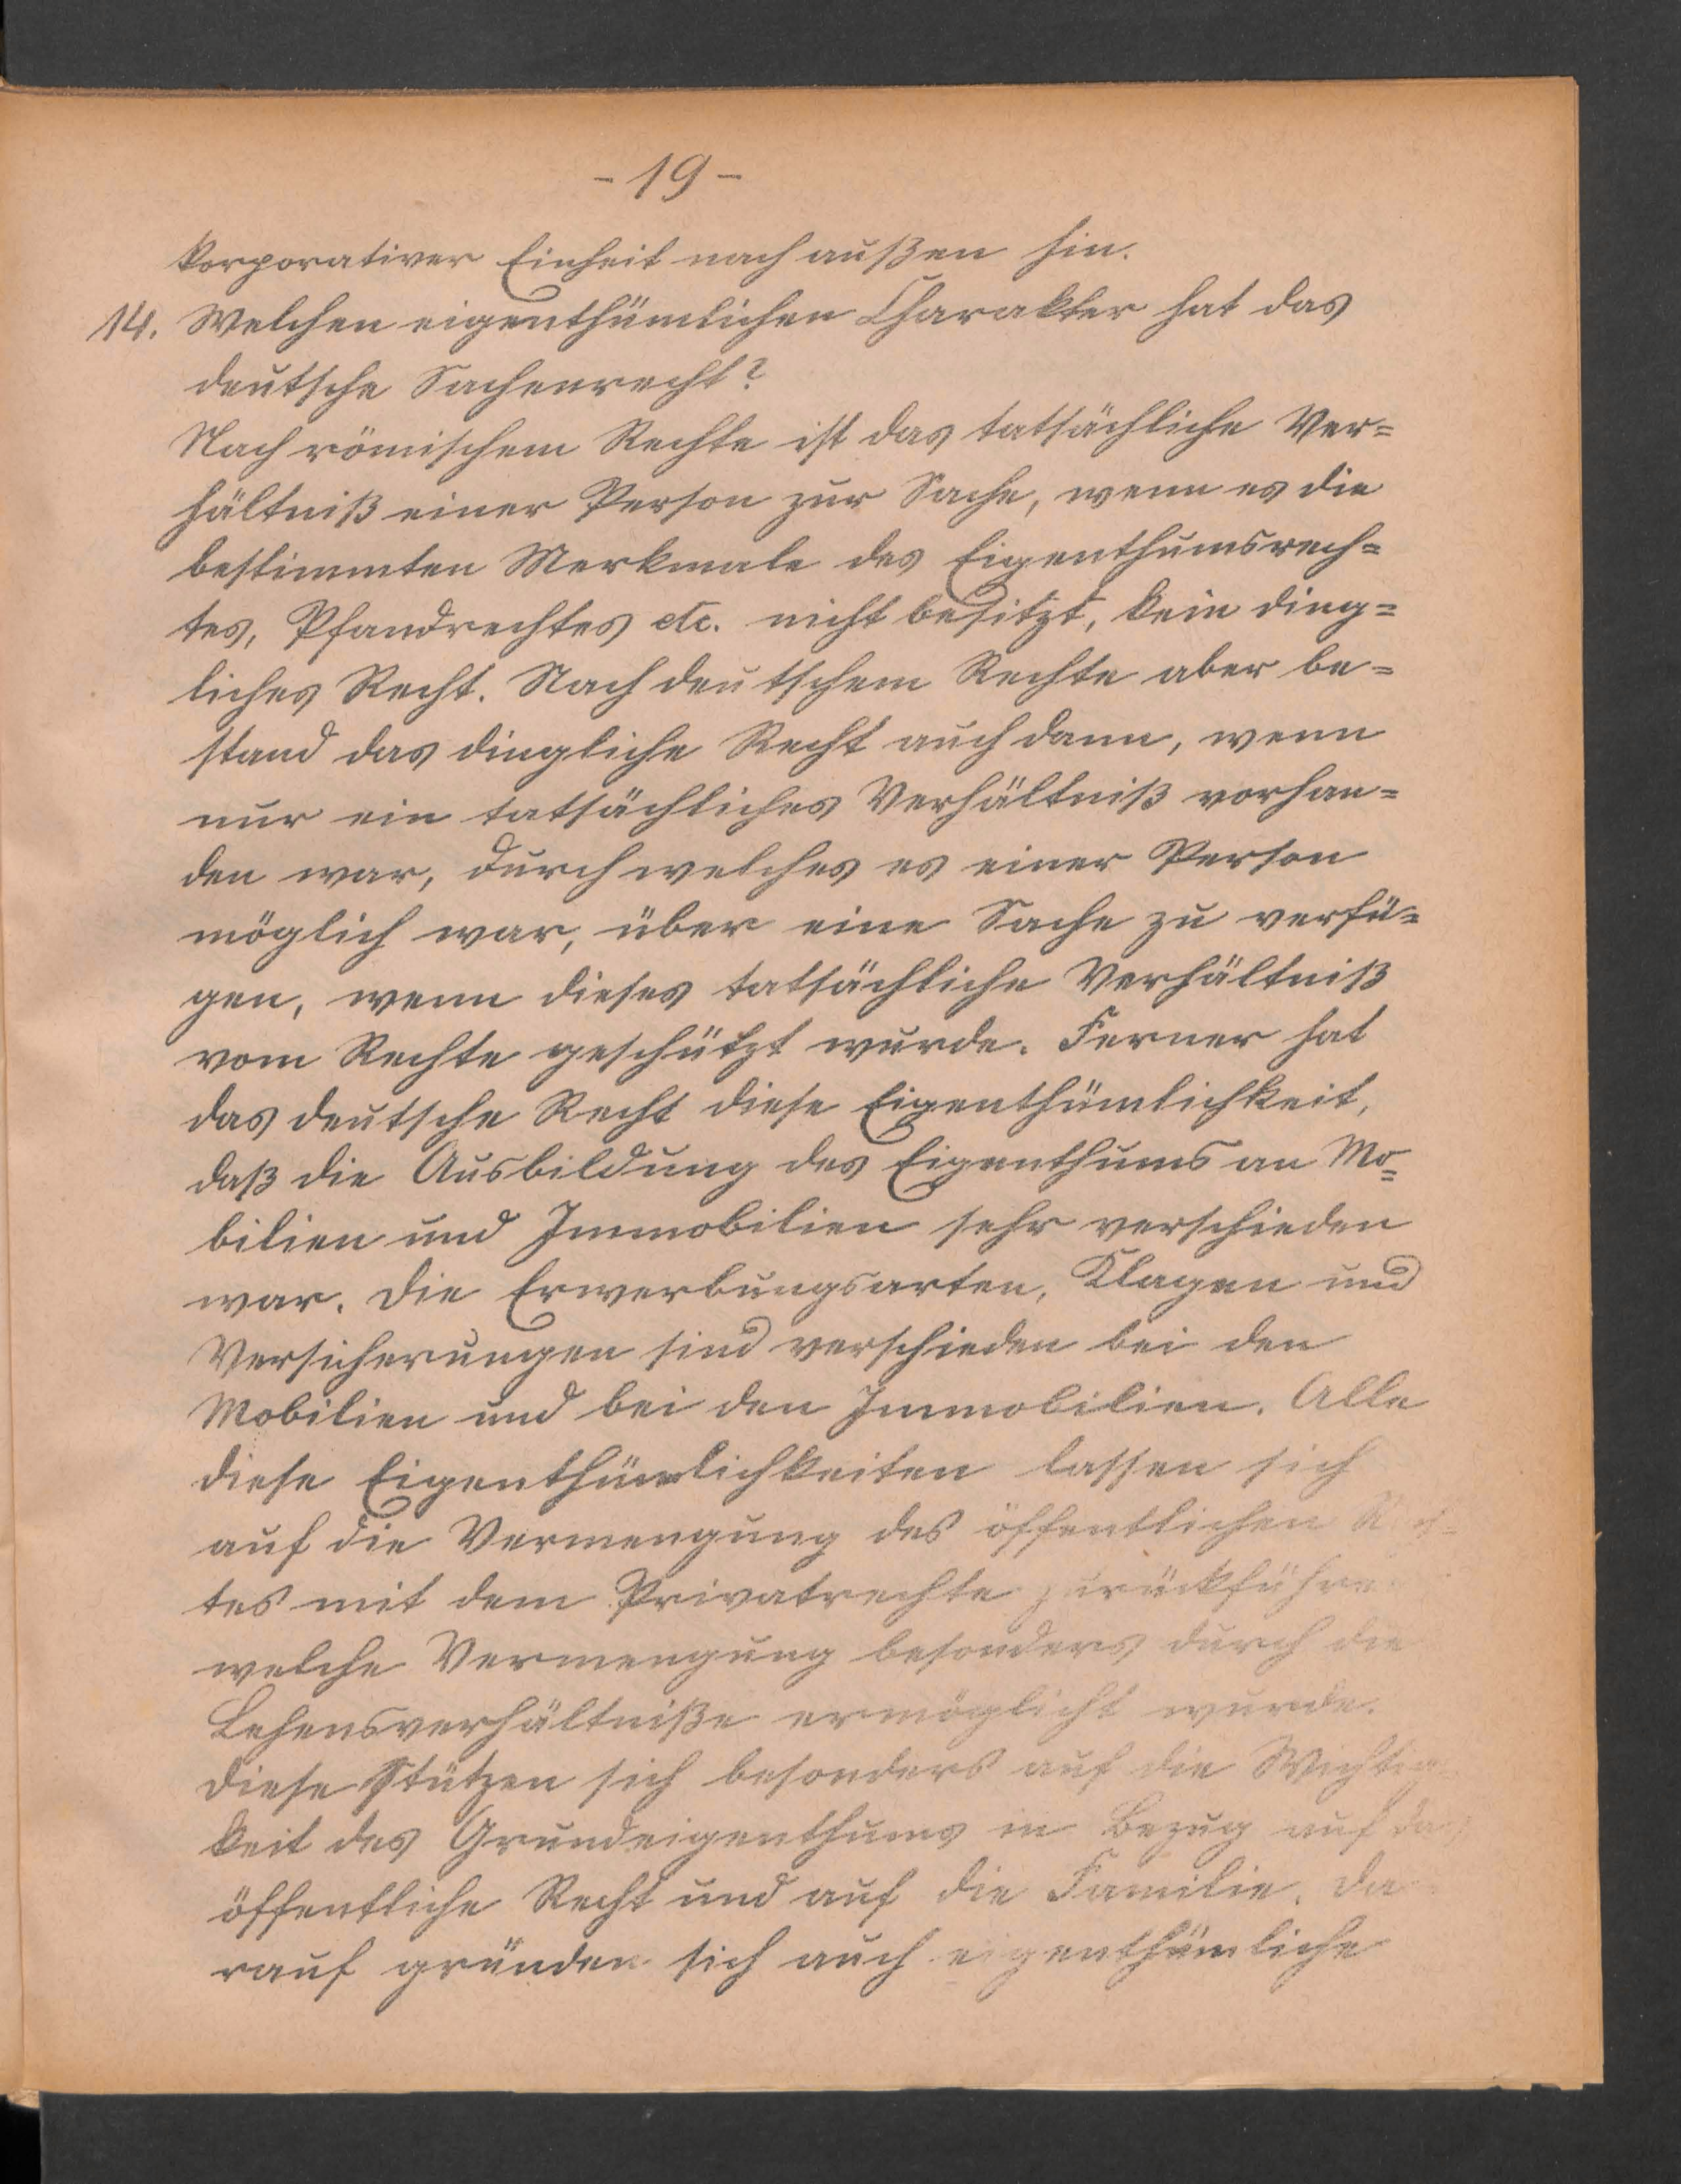 - 19 -
korporativer Einheit nach außen hin.
14. Welchen eigenthümlichen Charakter hat das
deutsche Sachenrecht?
Nach römischem Rechte ist das tatsächliche Ver=
hältniß einer Person zur Sache, wenn es die
bestimmten Merkmale des Eigenthumsrech=
tes, Pfandrechtes etc. nicht besitzt, kein ding=
liches Recht. Nach deutschem Rechte aber be=
stand das dingliche Recht auch dann, wenn
nur ein tatsächliches Verhältniß vorhan=
den war, durch welches es einer Person
möglich war, über eine Sache zu verfü=
gen, wenn dieses tatsächliche Verhältniß
vom Rechte geschützt wurde. Ferner hat
das deutsche Recht diese Eigenthümlichkeit,
daß die Ausbildung des Eigenthums an Mo=
bilien und Immobilien sehr verschieden
war. Die Erwerbungsarten, Klagen und
Versicherungen sind verschieden bei den
Mobilien und bei den Immobilien. Alle
diese Eigenthümlichkeiten lassen sich
auf die Vermengung des öffentlichen Rech=
tes mit dem Privatrechte zurückführen
welche Vermengung besonders durch die
Lehensverhältniße ermöglicht wurde.
Diese stützen sich besonders auf die Wichtig=
keit des Grundeigenthums in Bezug auf das
öffentliche Recht und auf die Familie. Da=
rauf gründen sich auch eigenthümliche